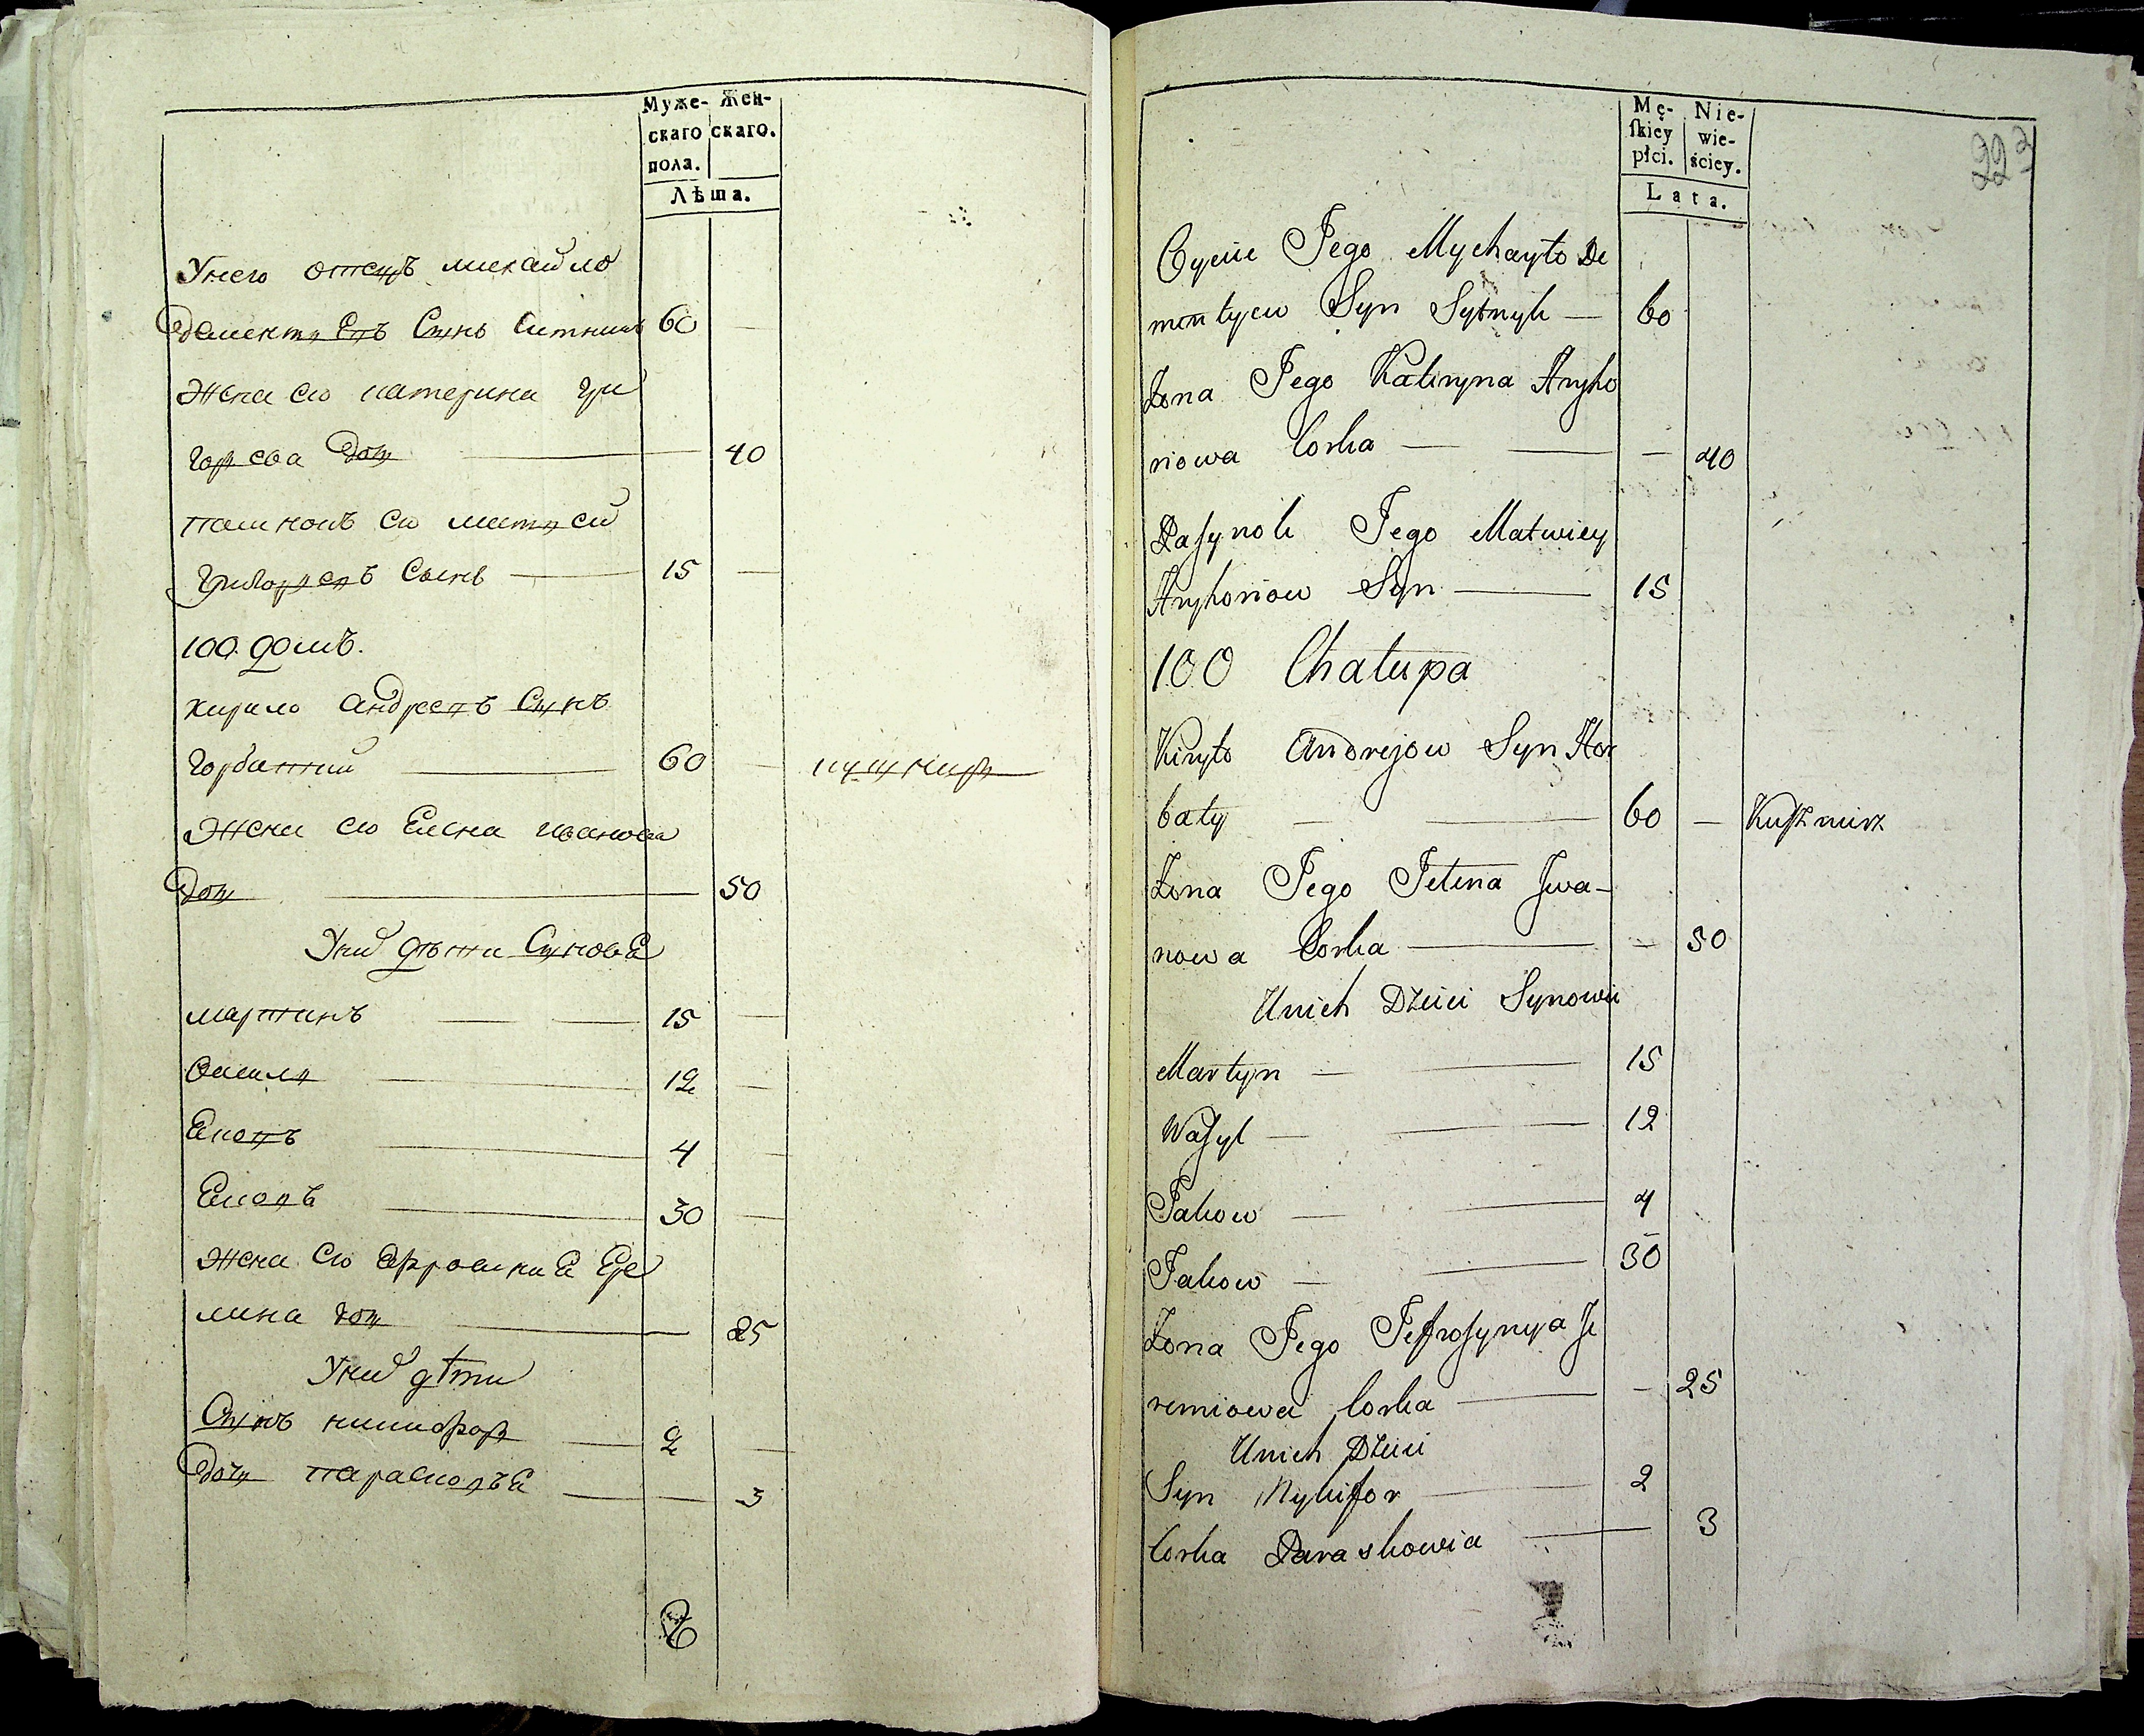 Муже- Жен-
скаго скаго.
пола.
Лѣта.
Унего отецъ михайло
Дементиевъ Сынъ Ситникъ 60 —
Жена его катерина гри
горева Доч — 40
пасинокъ его матвей
Григориевъ Сынъ — 15 —
100. домъ.
кирило андреевъ Сынъ
горбатий — 60 — кушнир
Жена его Елена иванова
Доч — 50
Уних дѣти Сыновя
мартинъ — — 15 —
василь — 12 —
Яковъ — 4 —
Яковъ — 30 —
жена его Ефросиния Ере
мина доч — 25
Уних дѣти
Сынъ никифор — 2 —
Доч парасковья — 3
Mę- Nie-
ſkiey wie-
płci. ściey.
Lata.
223
Oycie Jego Mychayło De
mentycw Syn Sytnyk — 60
Zona Jego Kateryna Hryho
riowa Corka — — — 40
Pasynok Jego Matwiey
Hryhoriow Syn — 15
100 Chałupa
Kiryło Andrejow Syn Hor
baty — — 60 — Kuſznirz
Zona Jego Jelena Jwa-
nowa Corka — — 50
Unich Dzieci Synowie
Martyn — — 15
Waſyl — — 12
Jakow — — 4
Jakow — — 30
Zona Jego Jefroſynyja Je
remiowa Corka — — 25
Unich Dzieci
Syn Nykifor — 2
Corka Paraskowia — 3